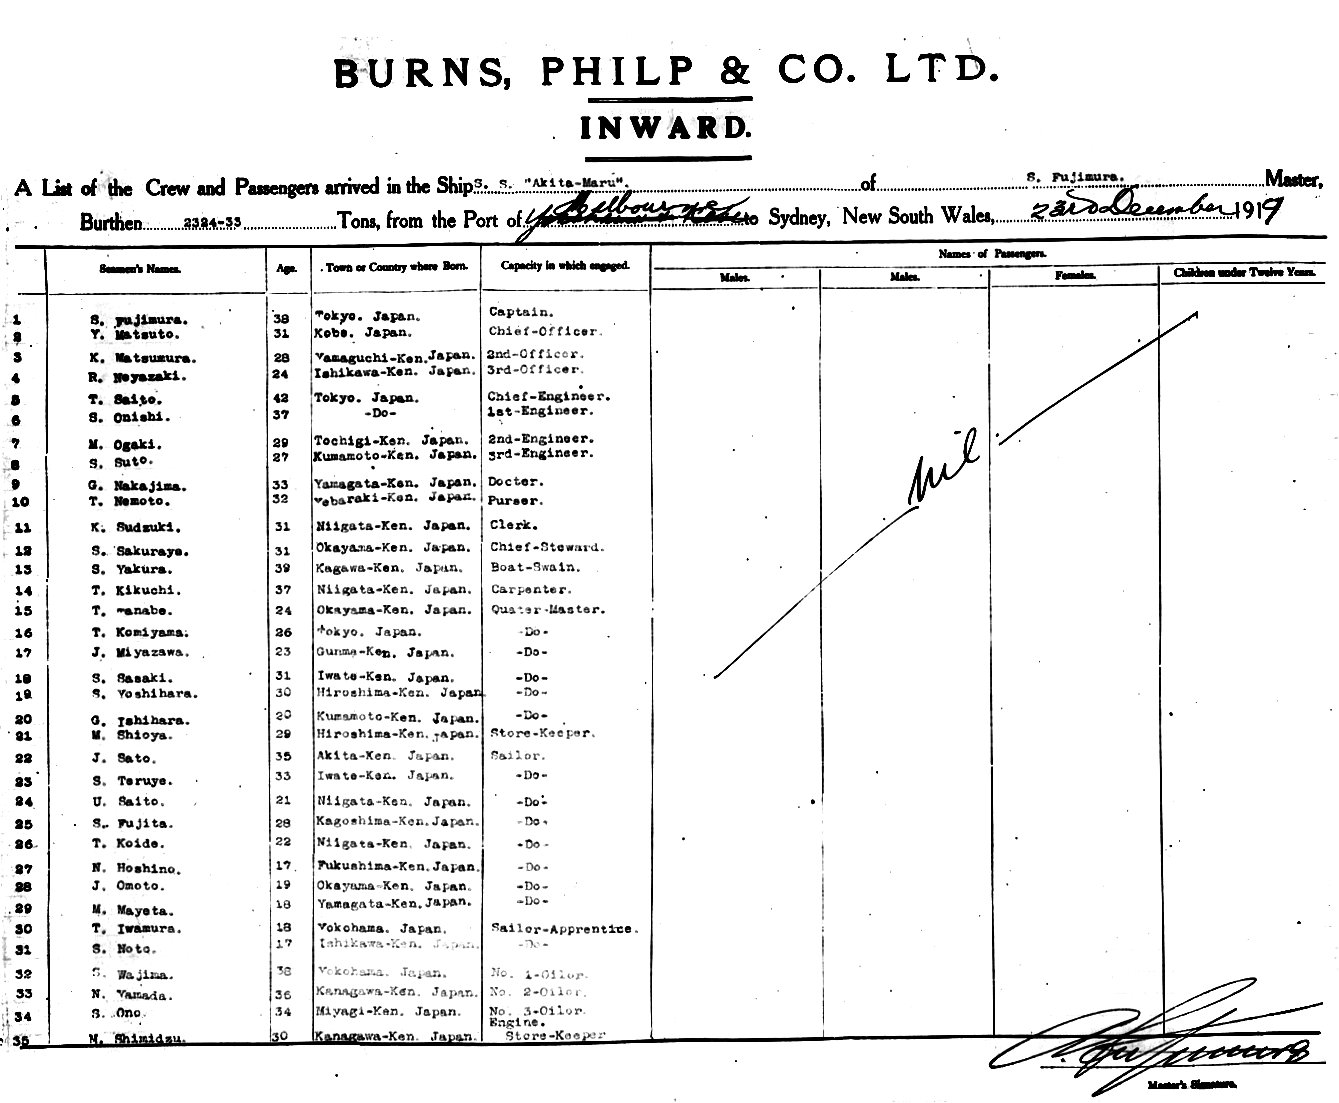 BURNS, PHILP & CO. LTD.
INWARD.
A List of the Crew and Passengers arrived in the Ship S. S. "Akita-Maru". of S. Fujimura. Master,
Burthen 2324-33 Tons, from the Port of Melbourne to Sydney, New South Wales, 23rd December 1919
Seamen's Names. Age. Town or Country where Born. Capacity in which engaged. Names of Passengers.
Males. Males. Females. Children under Twelve Years.
1 S. Fujimura. 38 Tokyo. Japan. Captain.
2 Y. Matsuto. 31 Kobe. Japan. Chief-Officer.
3 K. Matsumura. 28 Yamaguchi-Ken. Japan. 2nd-Officer.
4 R. Noyazaki. 24 Ishikawa-Ken. Japan. 3rd-Officer.
5 T. Saito. 42 Tokyo. Japan. Chief-Engineer.
6 S. Onishi. 37 -Do- 1st-Engineer.
7 M. Ogaki. 29 Tochigi-Ken. Japan. 2nd-Engineer.
8 S. Suto. 27 Kumamoto-Ken. Japan. 3rd-Engineer.
9 G. Nakajima. 33 Yamagata-Ken. Japan. Docter.
10 T. Nemoto. 32 Yebaraki-Ken. Japan. Purser.
11 K. Sudzuki. 31 Niigata-Ken. Japan. Clerk.
12 S. Sakuraye. 31 Okayama-Ken. Japan. Chief-Steward.
13 S. Yakura. 39 Kagawa-Ken. Japan. Boat-Swain.
14 T. Kikuchi. 37 Niigata-Ken. Japan. Carpenter.
15 T. Tanabe. 24 Okayama-Ken. Japan. Quater-Master.
16 T. Komiyama. 26 Tokyo. Japan. -Do-
17 J. Miyazawa. 23 Gunma-Ken. Japan. -Do-
18 S. Sasaki. 31 Iwate-Ken. Japan. -Do-
19 S. Yoshihara. 30 Hiroshima-Ken. Japan -Do-
20 G. Ishihara. 20 Kumamoto-Ken. Japan. -Do-
21 M. Shioya. 29 Hiroshima-Ken. Japan. Store-Keeper.
22 J. Sato. 35 Akita-Ken. Japan. Sailor.
23 S. Teruye. 33 Iwate-Ken. Japan. -Do-
24 U. Saito. 21 Niigata-Ken. Japan. -Do-
25 S. Fujita. 28 Kagoshima-Ken. Japan. -Do-
26 T. Koide. 22 Niigata-Ken. Japan. -Do-
27 N. Hoshino. 17 Fukushima-Ken. Japan. -Do-
28 J. Omoto. 19 Okayama-Ken. Japan. -Do-
29 M. Mayeta. 18 Yamagata-Ken. Japan. -Do-
30 T. Iwamura. 18 Yokohama. Japan. Sailor-Apprentice.
31 S. Noto. 17 Ishikawa-Ken. Japan. -Do-
32 S. Wajima. 38 Yokohama. Japan. No. 1-Oilor.
33 N. Yamada. 36 Kanagawa-Ken. Japan. No. 2-Oilor.
34 S. Ono. 34 Miyagi-Ken. Japan. No. 3-Oilor.
35 M. Shimidzu. 30 Kanagawa-Ken. Japan. Engine. Store-Keeper
Nil
S. Fujimura
Master's Signature.